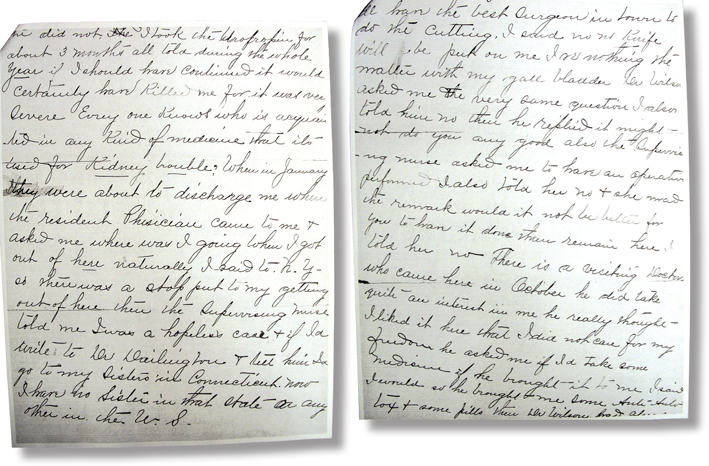 he did not I took the Urofropin for
about 3 months all told during the whole
year if I should have continued it would
certainly have Killed me for it was very
severe Every one Knows who is acquain
ted in any Kind of medicine that its
used for Kidney trouble? When in January
they were about to discharge me where
the resident Phisician came to me +
asked me where was I going when I got
out of here naturally I said to N. Y-
so there was a stop put to my getting
out of here then the Supervising nurse
told me I was a hopeless case + if I'd
write to Dr Darlington + tell him I'd
go to my Sisters in Connecticut. now
I have no sister in that state or any
other in the U. S.
have the best Surgeon in town to
do the cutting. I said no no Knife
will be put on me I've nothing the
matter with my gall bladder Dr Wilson
asked me the very same question I also
told him no then he replied it might-
not do you any good also the Supervis
-ng nurse asked me to have an operation
performed I also told her no + she made
the remark would it not be better for
you to have it done then remain here I
told her no There is a visiting doctor
who came here in October he did take
quite an interist in me he really thought-
I liked it here that I did not care for my
freedom he asked me if I'd take some
medicine if he brought it to me I said
I would so he brought me some Anti-Auto
tox + some pills then Dr Wilson had